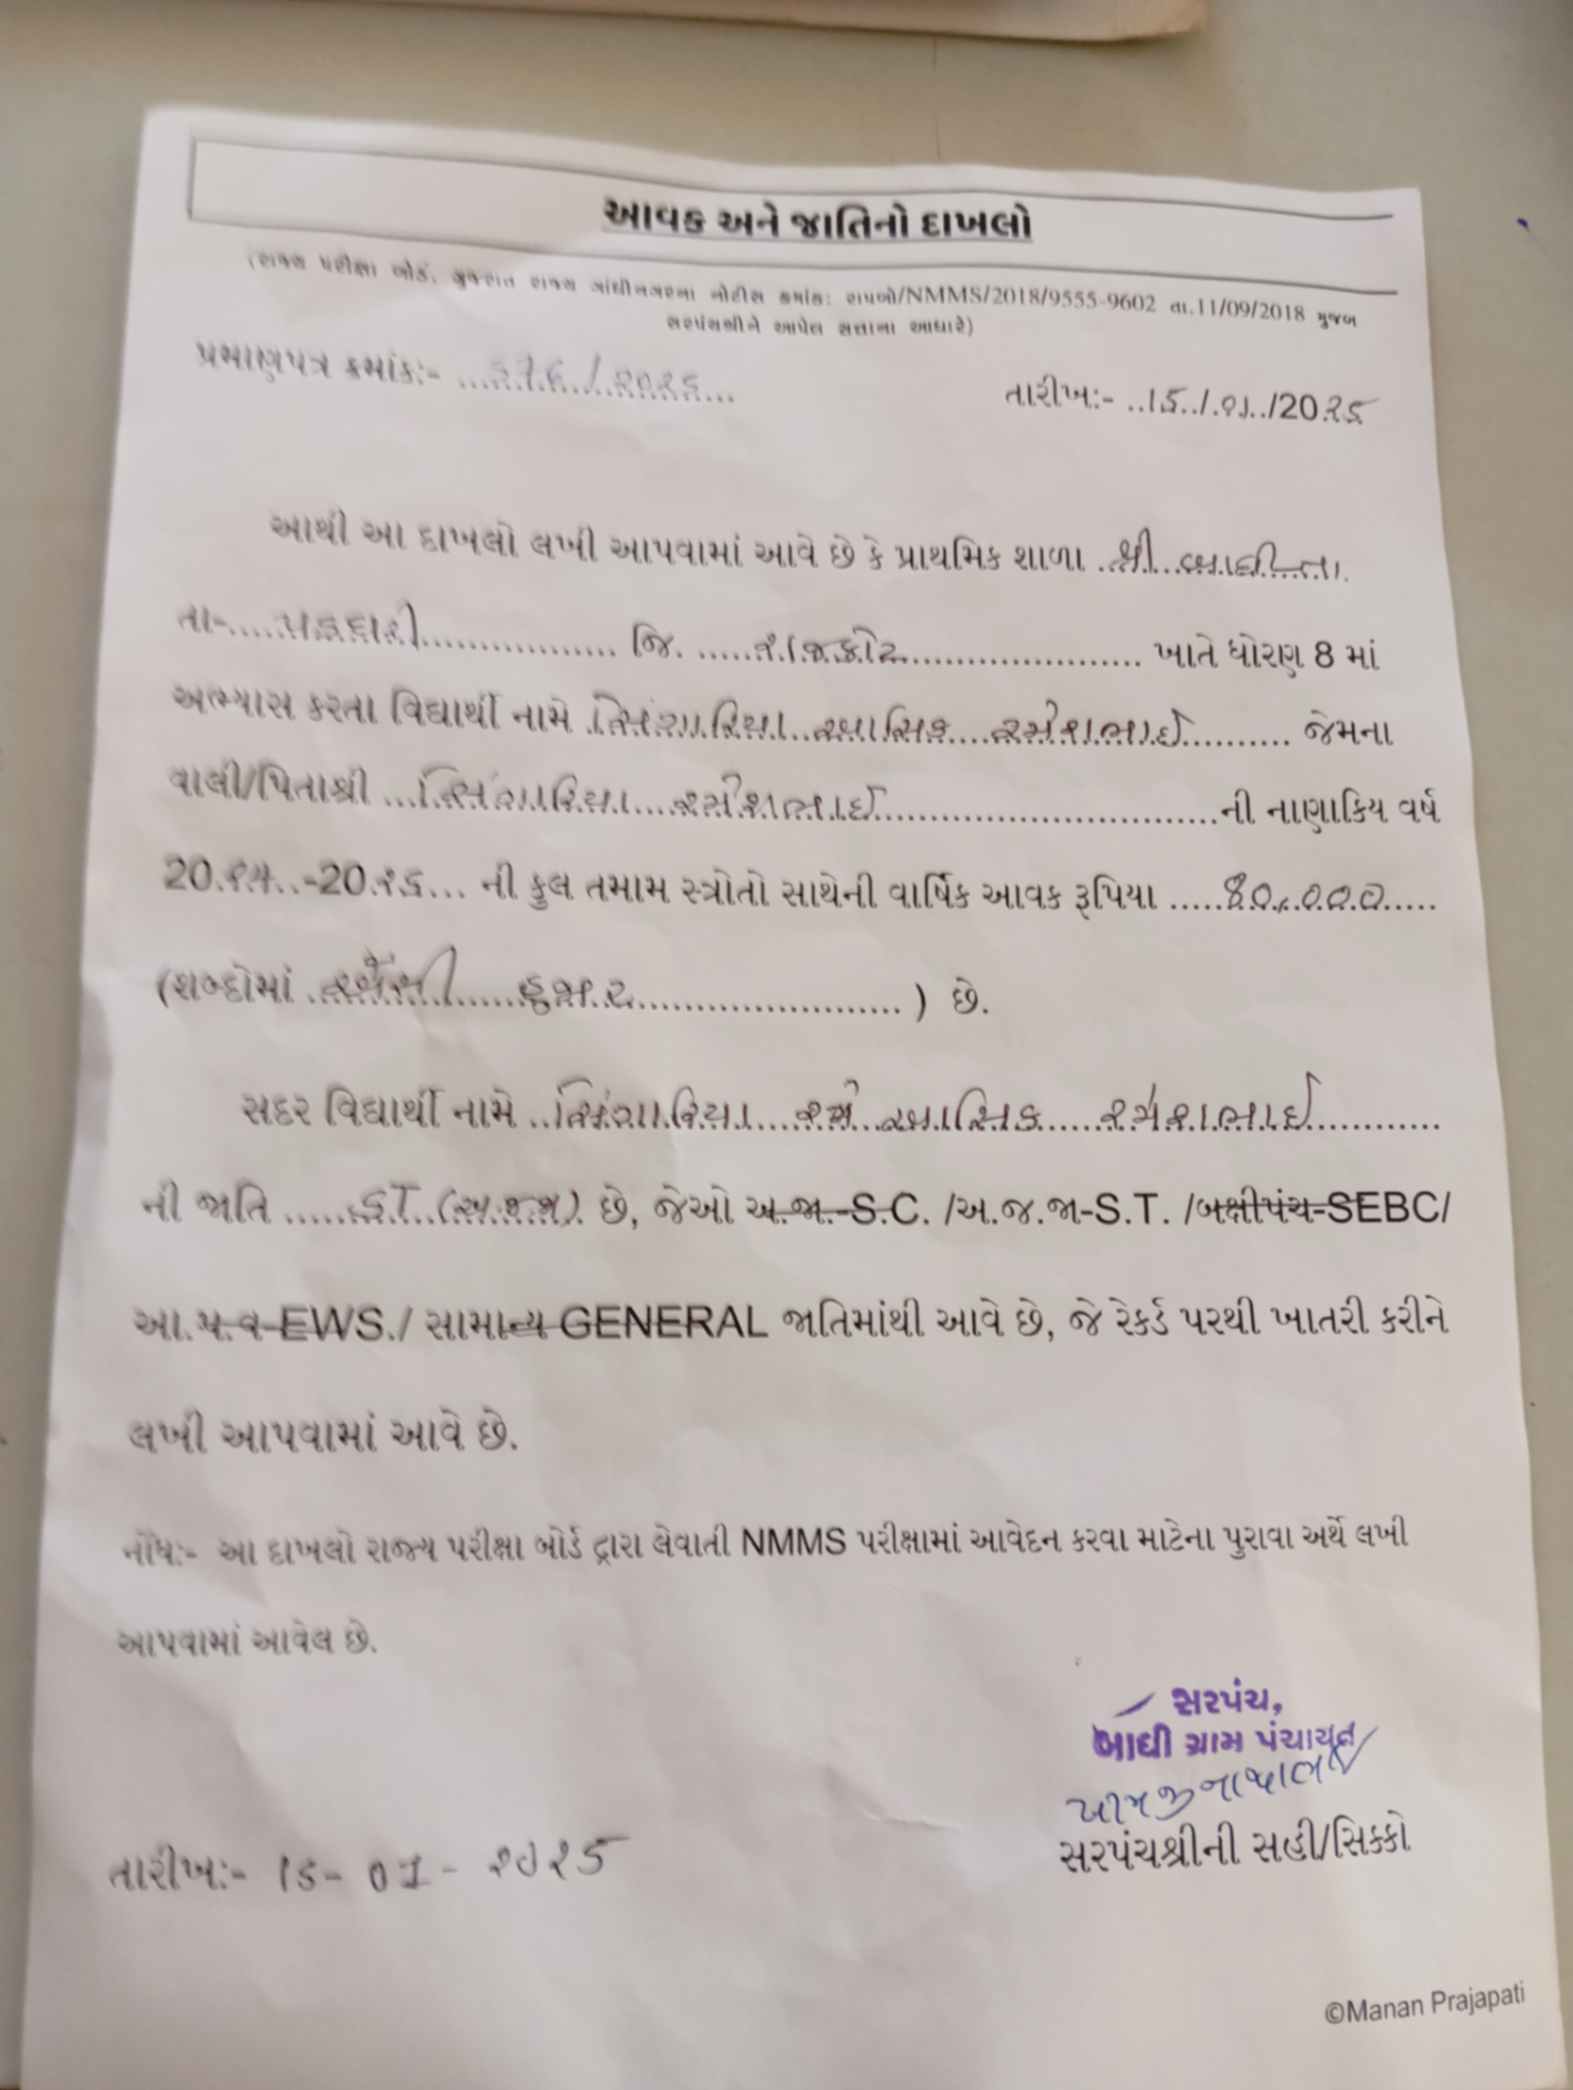 આવક અને જાતિનો દાખલો
(રાજ્ય પરીક્ષા બોર્ડ, ગુજરાત રાજ્ય ગાંધીનગરના નોટીસ ક્રમાંક: રાપબો/NMMS/2018/9555-9602 તા.11/09/2018 મુજબ
સરપંચશ્રીને આપેલ સત્તાના આધારે)
પ્રમાણપત્ર ક્રમાંક:-
તારીખ:- ..15../.01../20
આથી આ દાખલો લખી આપવામાં આવે છે કે પ્રાથમિક શાળા શ્રી
તા-.....પડધરી................. જિ. .....રાજકોટ...................... ખાતે ધોરણ 8 માં
અભ્યાસ કરતા વિદ્યાર્થી નામે સિંગારિયા આસિક રમેશભાઈ.......... જેમના
વાલી/પિતાશ્રી ...સિંગારિયા....રમેશભાઈ..............................ની નાણાકિય વર્ષ
ની કુલ તમામ સ્ત્રોતો સાથેની વાર્ષિક આવક રૂપિયા
(શબ્દોમાં હજાર........................ ) છે.
સદર વિદ્યાર્થી નામે ..સિંગારિયા.... આસિક......રમેશભાઈ............
ની જાતિ ......ST.. છે, જેઓ અ.જા.-S.C. /અ.જ.જા-S.T. /બક્ષીપંચ-SEBC/
આ.પ.વ-EWS./ સામાન્ય GENERAL જાતિમાંથી આવે છે, જે રેકર્ડ પરથી ખાતરી કરીને
લખી આપવામાં આવે છે.
નોંધ:- આ દાખલો રાજ્ય પરીક્ષા બોર્ડ દ્વારા લેવાતી NMMS પરીક્ષામાં આવેદન કરવા માટેના પુરાવા અર્થે લખી
આપવામાં આવેલ છે.
સરપંચ,
બાઘી ગ્રામ પંચાયત
સરપંચશ્રીની સહી/સિક્કો
તારીખ:- 15-01-૨૦૨5
©Manan Prajapati